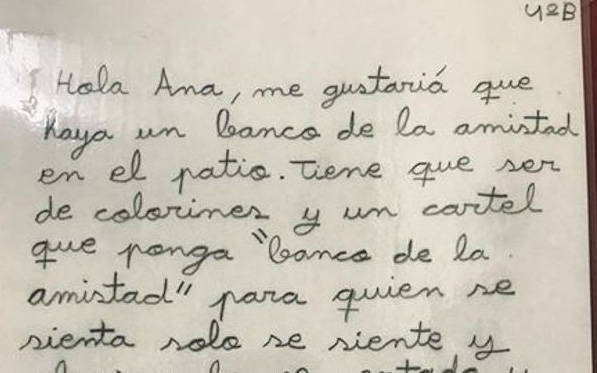 4ºB
Hola Ana, me gustariá que
haya un banco de la amistad
en el patio. Tiene que ser
de colorines y un cartel
que ponga "banco de la
amistad" para quien se
sienta solo se siente y